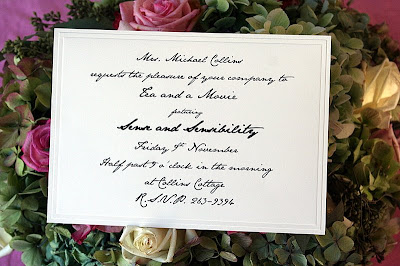 Mrs. Michael Collins
requests the pleasure of your company to
Tea and a Movie
featuring
Sense and Sensibility
Friday 9th November
Half past 9 o'clock in the morning
at Collins Cottage
R.S.V.P. 263-9394